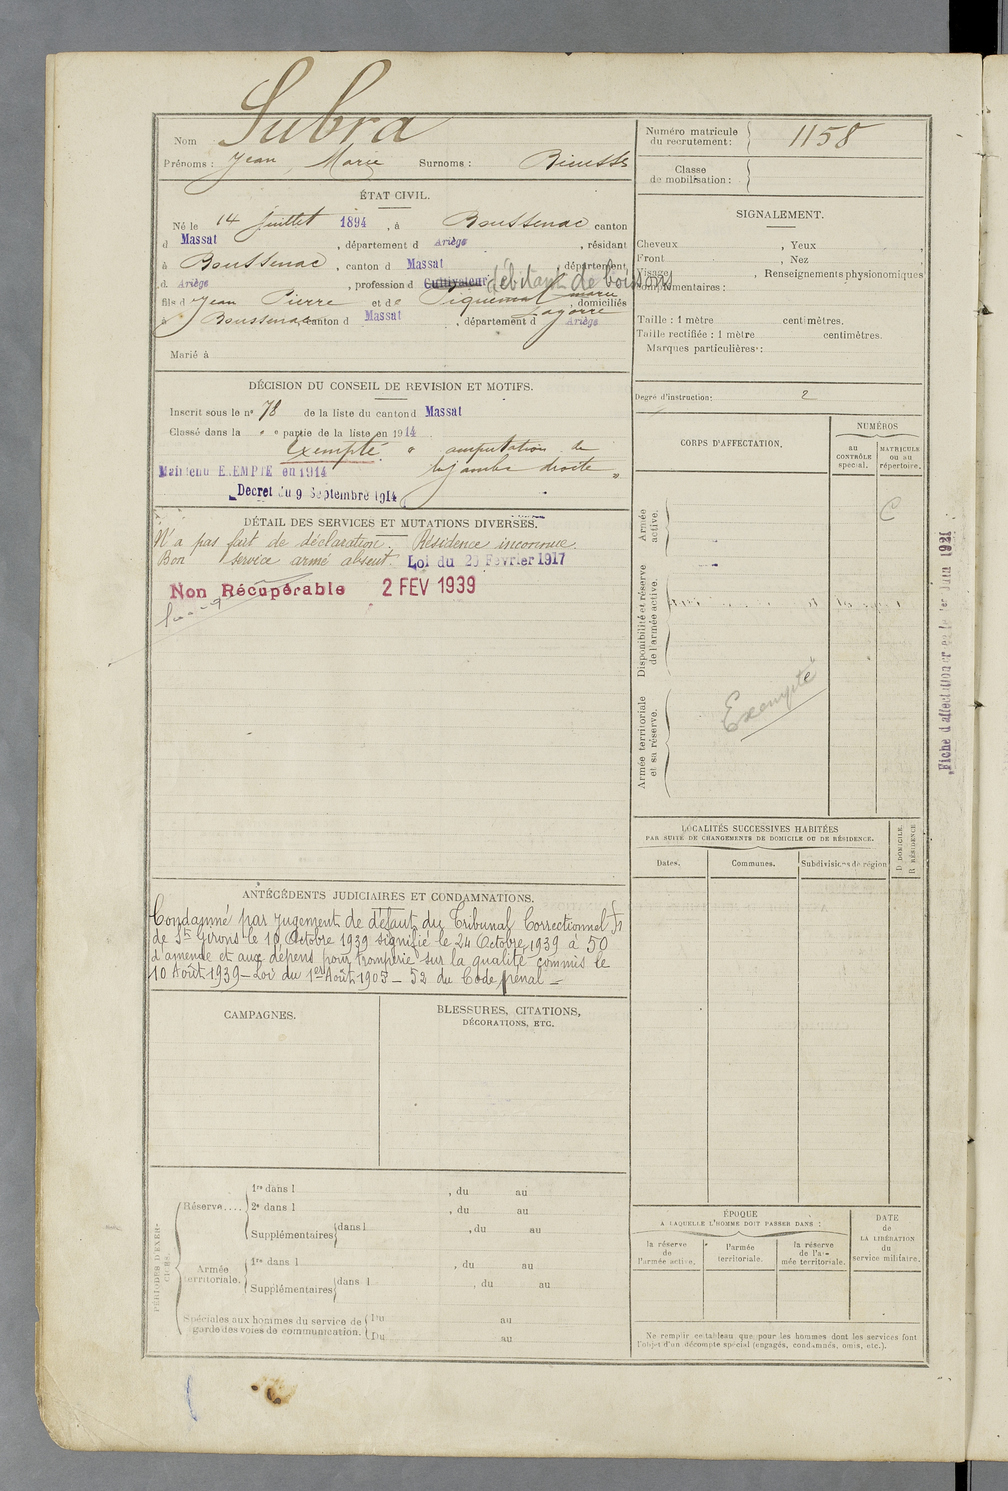 Subra
Nom
Prénoms : Jean Marie Surnoms :
ÉTAT CIVIL.
Né le 14 Juillet 1894, à Boussenac canton
d Massat, département d Ariège, résidant
à Boussenac, canton d Massat, département
d Ariège, profession d Cultivateur débitant de boissons
fils d Jean Pierre et de Piquemal Marie, domiciliés
Lagorre
à Boussenac canton d Massat, département d Ariège
Marié à
DÉCISION DU CONSEIL DE REVISION ET MOTIFS.
Inscrit sous le nº 78 de la liste du canton d Massat
Classé dans la " " partie de la liste en 1914
Exempté " amputation de
la jambe droite "
Maintenu EXEMPTÉ en 1914
Decret du 9 Septembre 1914
DÉTAIL DES SERVICES ET MUTATIONS DIVERSES.
N'a pas fait de déclaration. Résidence inconnue.
Bon service armé absent. Loi du 20 Fevrier 1917
Non Récupérable 2 FEV 1939
ANTÉCÉDENTS JUDICIAIRES ET CONDAMNATIONS.
Condamné par jugement de défaut du Tribunal Correctionnel
de St Girons le 10 Octobre 1939 signifié le 24 Octobre 1939 à 50 frs
d'amende et aux dépens pour tromperie sur la qualité commis le
10 Août 1939 – Loi du 1er Août 1905 – 52 du Code pénal –
CAMPAGNES.
BLESSURES, CITATIONS,
DÉCORATIONS, ETC.
PÉRIODES D'EXERCICES.
Réserve....
1re dans l , du au
2e dans l , du au
Supplémentaires dans l , du au
Armée
territoriale.
1re dans l , du au
Supplémentaires dans l , du au
Spéciales aux hommes du service de
garde des voies de communication.
Du au
Du au
Numéro matricule
du recrutement : 1158
Classe
de mobilisation :
SIGNALEMENT.
Cheveux , Yeux ,
Front , Nez
Visage , Renseignements physionomiques
complémentaires :
Taille : 1 mètre centimètres.
Taille rectifiée : 1 mètre centimètres.
Marques particulières :
Degré d'instruction : 2
CORPS D'AFFECTATION.
NUMÉROS
au
CONTRÔLE
spécial.
MATRICULE
ou au
répertoire.
C
Armée
active.
Disponibilité et réserve
de l'armée active.
Armée territoriale
et sa réserve.
Exempté
Fiche d'affectation créée le 1er Juin 1921
LOCALITÉS SUCCESSIVES HABITÉES
PAR SUITE DE CHANGEMENTS DE DOMICILE OU DE RÉSIDENCE.
Dates.
Communes.
Subdivisions de région
D DOMICILE.
R RÉSIDENCE
ÉPOQUE
A LAQUELLE L'HOMME DOIT PASSER DANS :
la réserve
de
l'armée active.
l'armée
territoriale.
la réserve
de l'ar-
mée territoriale.
DATE
de
LA LIBÉRATION
du
service militaire.
Ne remplir ce tableau que pour les hommes dont les services font
l'objet d'un décompte spécial (engagés, condamnés, omis, etc.).